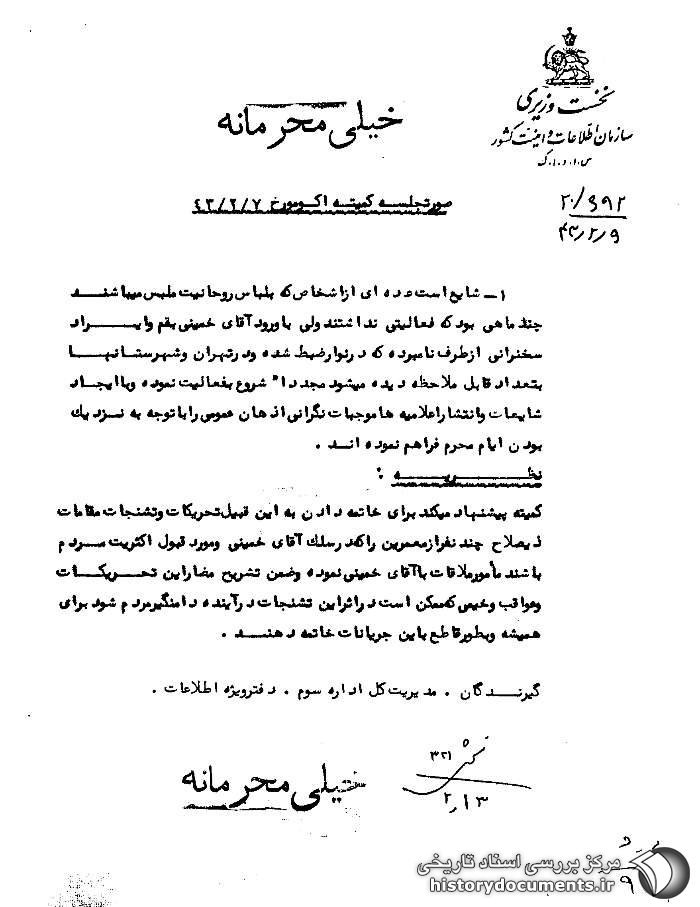 نخست وزیری
سازمان اطلاعات و امنیت کشور
س.ا.و.ا.ک
خیلی محرمانه
۲۰/۶۹۲
۴۳/۲/۹
صورتجلسه کمیته اکو مورخ ۴۳/۲/۷
۱ــ شایع است عده ای از اشخاص که بلباس روحانیت ملبس میباشنــد
چند ماهی بود که فعالیتی نداشتند ولی با ورود آقای خمینی بقم وایــراد
سخنرانی از طرف نامبرده که در نوار ضبط شده ودر تهران وشهرستانهـا
بتعداد قابل ملاحظه دیده میشود مجددا" شروع بفعالیت نموده وباایجـاد
شایعات وانتشار اعلامیه ها موجبات نگرانی اذهان عمومی را با توجه به نــزدیك
بودن ایام محرم فراهم نموده انــد .
نظــــریــــه :
کمیته پیشنهاد میکند برای خاتمه دادن به این قبیل تحریکات وتشنجات مقامات
ذیصلاح چند نفر از معمرین را که در سلك آقای خمینی ومورد قبول اکثریت مــردم
باشند مأمور ملاقات باآقای خمینی نموده وضمن تشریح مضار این تحــریکــات
وعواقب وخیمی که ممکن است در اثر این تشنجات در آینده دامنگیر مردم شود برای
همیشه وبطور قاطع باین جریانات خاتمه دهنــد .
گیرنــدگان . مدیریت کل اداره سوم . دفتر ویژه اطلاعات .
۳۲۱
۲/۱۳
خیلی محرمانه
مرکز بررسی اسناد تاریخی
historydocuments.ir